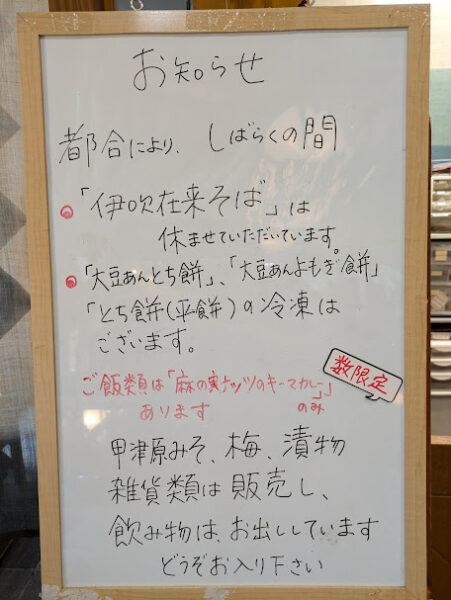 お知らせ
都合により、しばらくの間
「伊吹在来そば」は
休ませていただいています。
「大豆あんとち餅」、「大豆あんよもぎ餅」
「とち餅(平餅)の冷凍は
ございます。
数限定
ご飯類は「麻の実ナッツのキーマカレー」
のみ
あります
甲津原みそ、梅、漬物
雑貨類は販売し、
飲み物は、お出ししています
どうぞお入り下さい